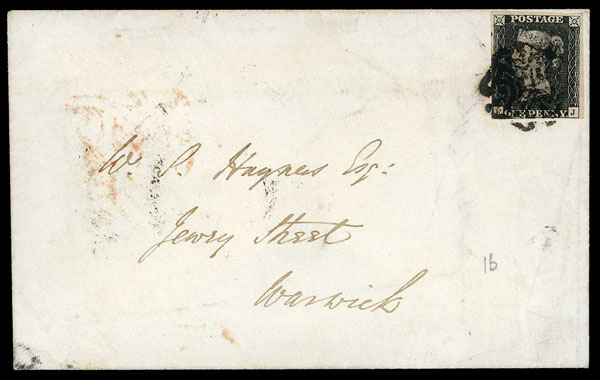 POSTAGE
ONE PENNY
J
W. S. Haynes Esq:
Jewry Street
Warwick
16